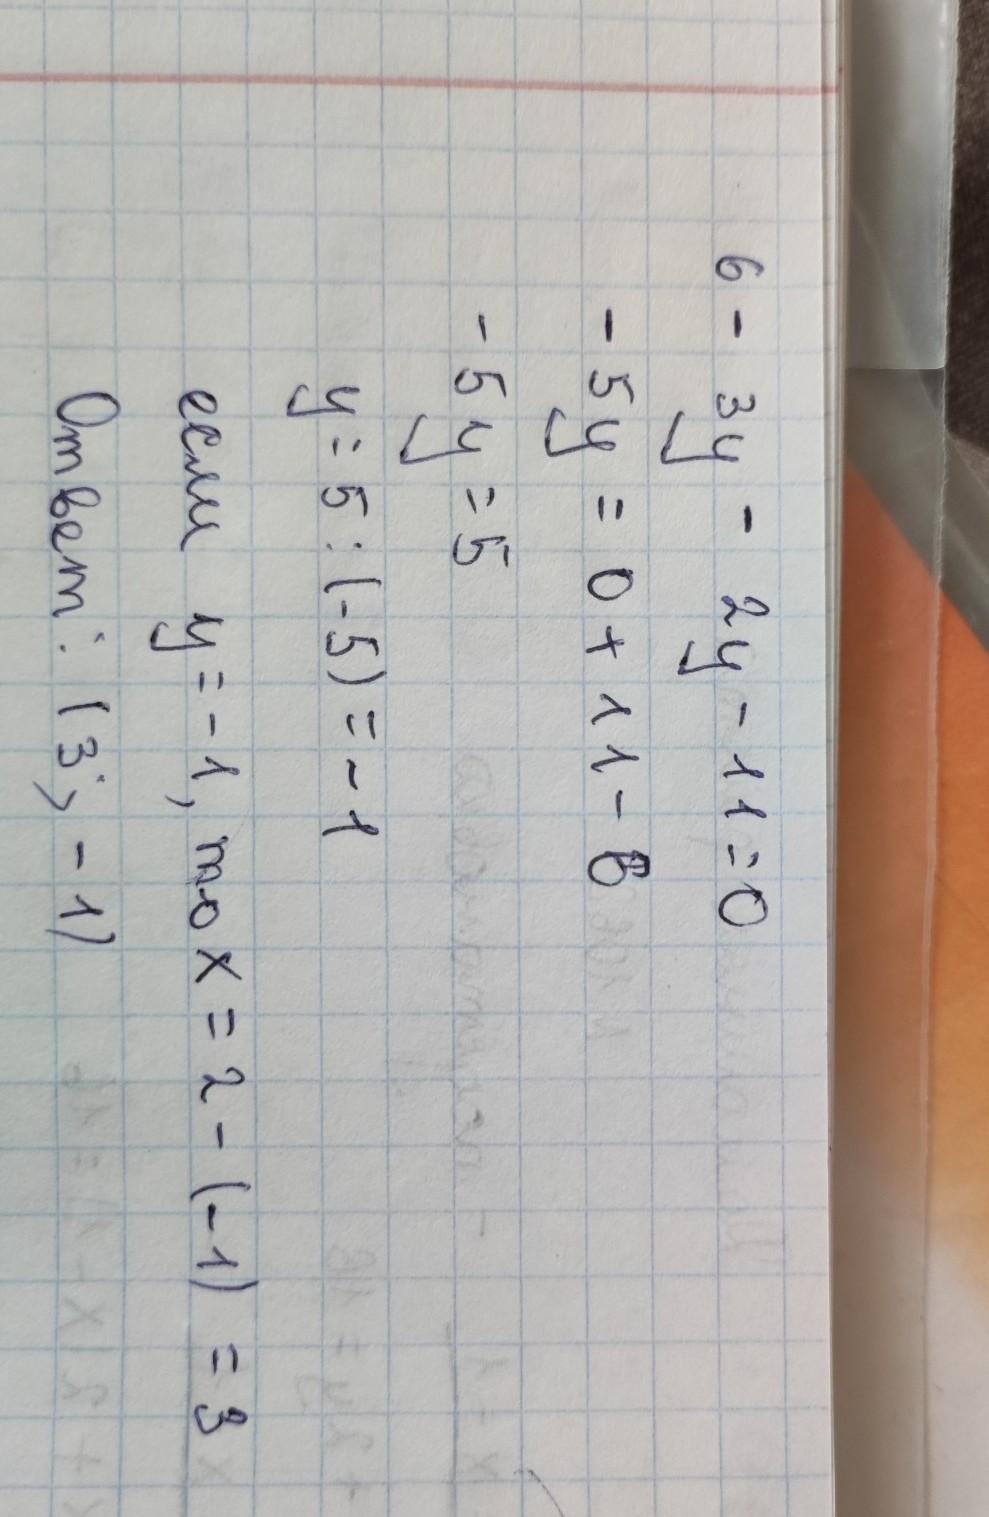 6 - 3у - 2у - 11 = 0
- 5у = 0 + 11 - 6
- 5у = 5
у = 5 : (-5) = -1
если у = -1, то х = 2 - (-1) = 3
Ответ: (3; -1)